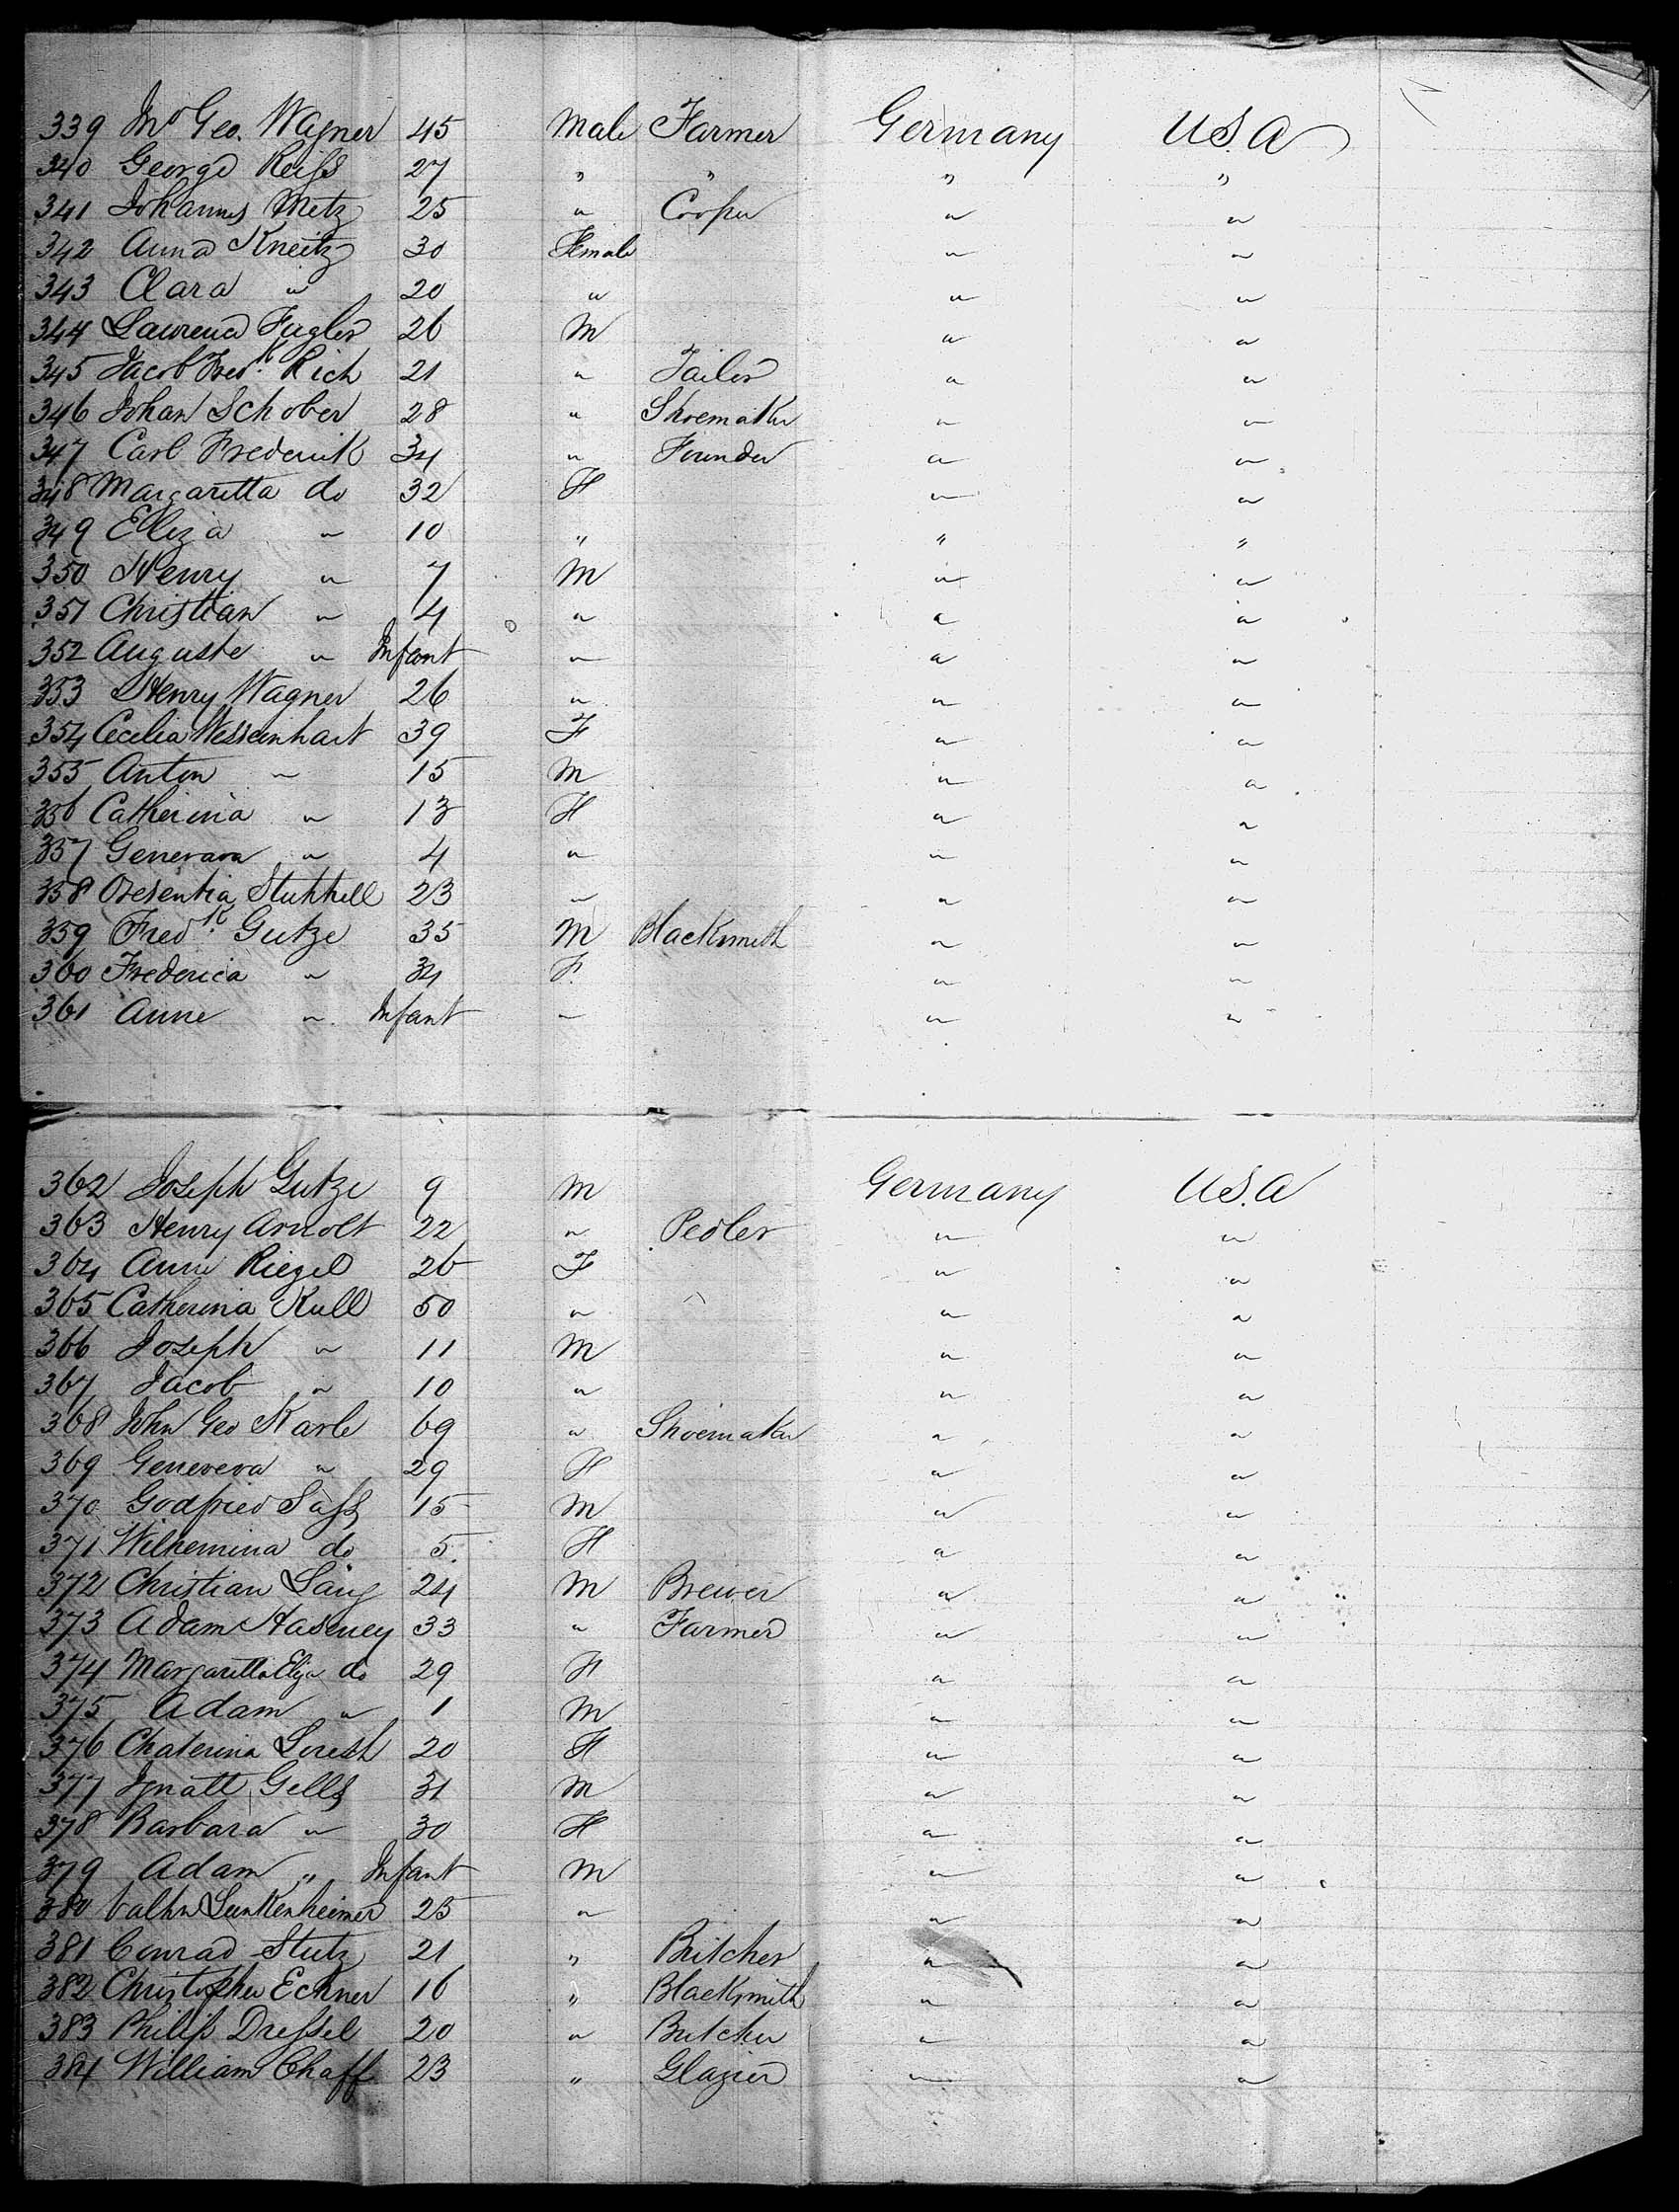 339 Jno Geo. Wagner 45 Male Farmer Germany U.S.A
340 George Reiss 27 " " " "
341 Johannes Metz 25 " Cooper " "
342 Anna Kneitz 30 Female " "
343 Clara " 20 " " "
344 Laurence Fugler 26 M " "
345 Jacob Fredk. Rich 21 " Tailor " "
346 Johan Schober 28 " Shoemaker " "
347 Carl Frederick 34 " Founder " "
348 Margaretta do 32 F " "
349 Eliza " 10 " " "
350 Henry " 7 M " "
351 Christian " 4 " " "
352 Auguste " Infant " " "
353 Henry Wagner 26 " " "
354 Cecilia Wesseinhart 39 F " "
355 Anton " 15 M " "
356 Catherina " 13 F " "
357 Generava " 4 " " "
358 Stuhhell 23 " " "
359 Fredk. Gutze 35 M Blacksmith " "
360 Frederica " 34 F. " "
361 Anne " Infant " " "
362 Joseph Gutze 9 M Germany U.S.A
363 Henry Arnolt 22 " Pedler " "
364 Anne Riegel 26 F " "
365 Catherina Kull 50 " " "
366 Joseph " 11 M " "
367 Jacob " 10 " " "
368 John Geo Karle 69 " Shoemaker " "
369 Geneveva " 29 F " "
370 Godfried Sass 15 M " "
371 Wilhemina do 5 F " "
372 Christian Lang 24 M Brewer " "
373 Adam Haseney 33 " Farmer " "
374 Margaretta Eliza do 29 F " "
375 Adam " 1 M " "
376 Chaterina Loresh 20 F " "
377 Ignatt Gells 31 M " "
378 Barbara " 30 F " "
379 Adam " Infant M " "
380 Valtn Lunkenheimer 25 " " "
381 Conrad Stutz 21 " Butcher " "
382 Christopher Eckner 16 " Blacksmith " "
383 Philip Dressel 20 " Butcher " "
384 William Chaff 23 " Glazier " "